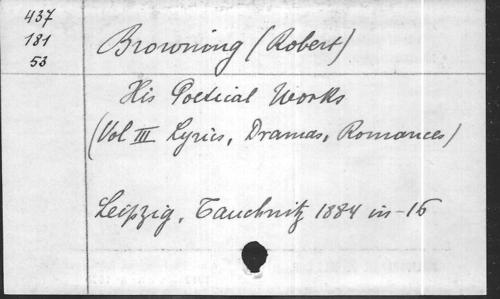 437
181
53
Browning (Robert)
His Poetical Works
(Vol III Lyrics, Dramas, Romances)
Leipzig, Tauchnitz 1884 in-16